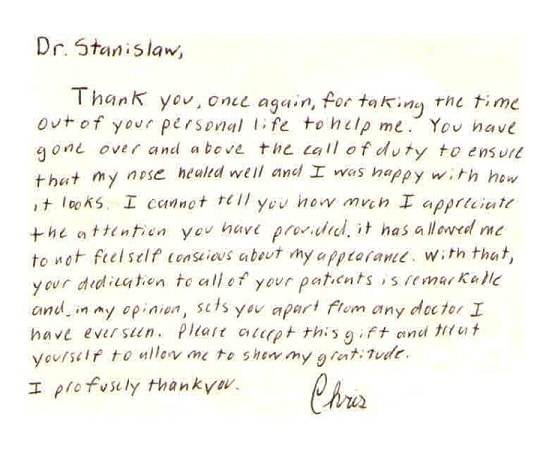 Dr. Stanislaw,
Thank you, once again, for taking the time
out of your personal life to help me. You have
gone over and above the call of duty to ensure
that my nose healed well and I was happy with how
it looks. I cannot tell you how much I appreciate
the attention you have provided. it has allowed me
to not feel self conscious about my appearance. With that,
your dedication to all of your patients is remarkable
and, in my opinion, sets you apart from any doctor I
have ever seen. Please accept this gift and treat
yourself to allow me to show my gratitude.
I profusely thank you.
Chris